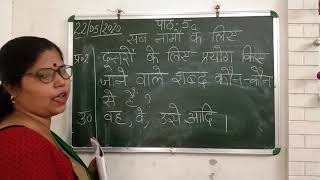 22/05/2020 पाठ: 5
सब नामों के लिए
प्र०2 दूसरों के लिए प्रयोग किए
जाने वाले शब्द कौन-कौन
से हैं ?
उ० वह, वे, उसे आदि ।